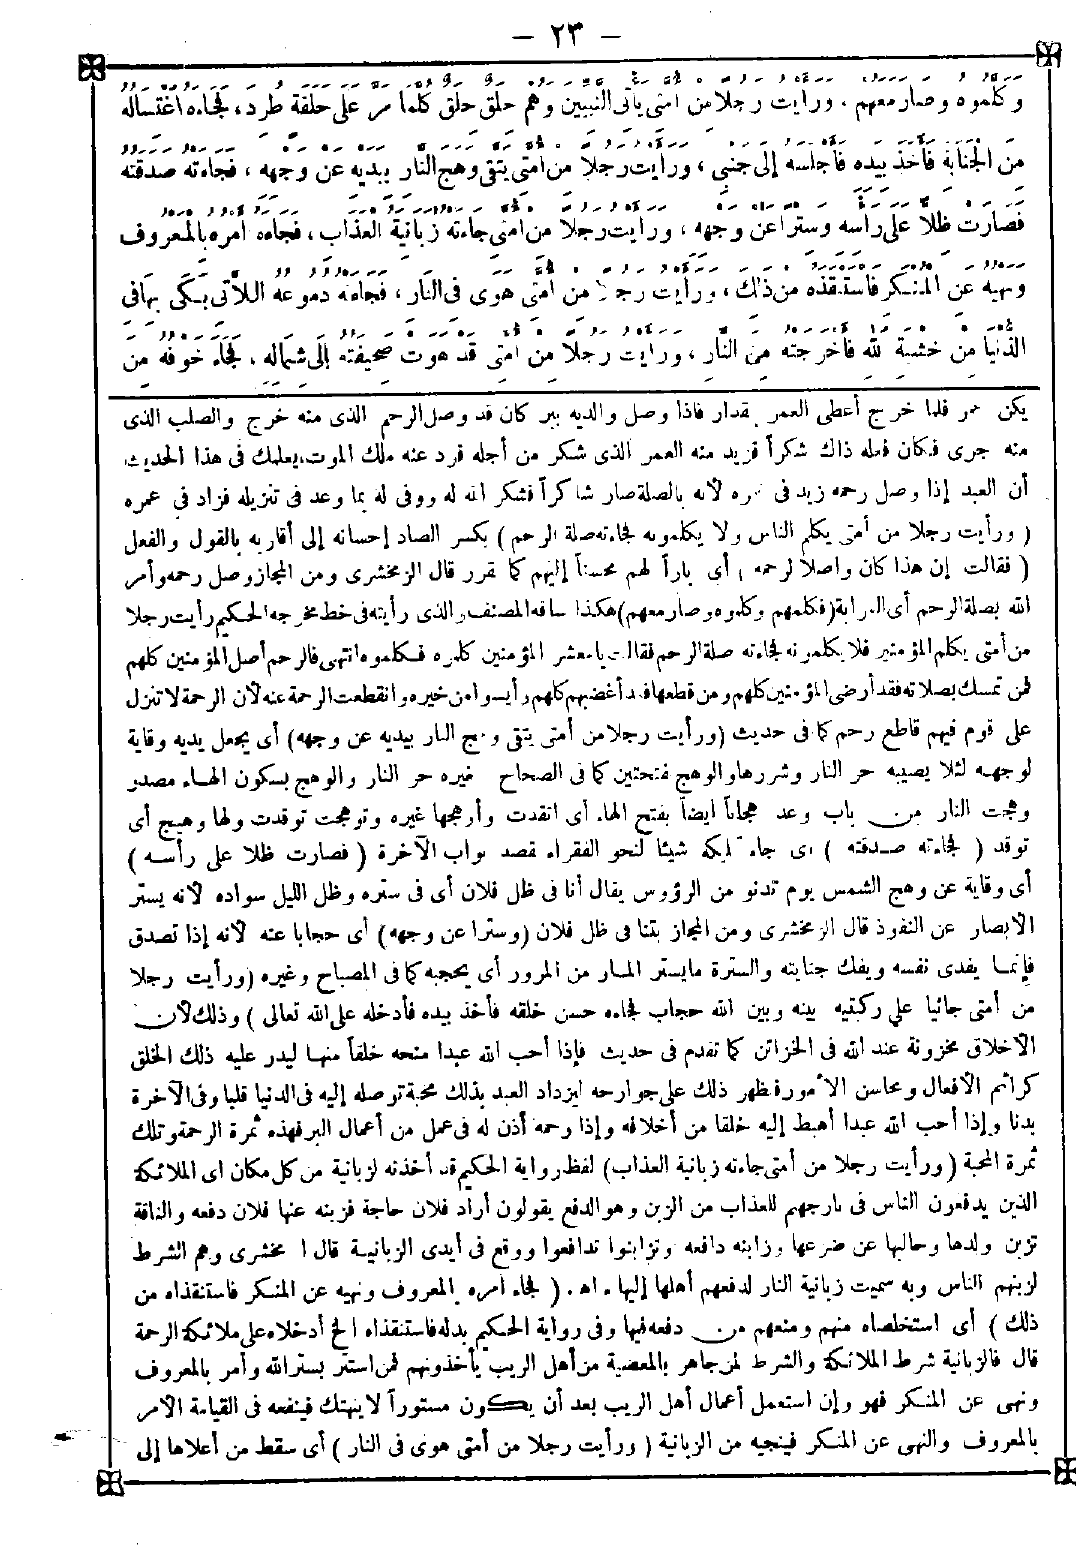 — ٢٣ —
وَكَلَّمُوهُ وَصَارَ مَعَهُمْ، وَرَأَيْتُ رَجُلاً مِنْ أُمَّتِي يَأْتِى النَّبِيِّينَ وَهُمْ حِلَقٌ حِلَقٌ كُلَّمَا مَرَّ عَلَى حَلْقَةٍ طُرِدَ، فَجَاءَهُ اغْتِسَالُهُ
مِنَ الْجَنَابَةِ فَأَخَذَ بِيَدِهِ فَأَجْلَسَهُ إِلَى جَنْبِي، وَرَأَيْتُ رَجُلاً مِنْ أُمَّتِي يَتَّقِى وَهَجَ النَّارِ بِيَدَيْهِ عَنْ وَجْهِهِ، فَجَاءَتْهُ صَدَقَتُهُ
فَصَارَتْ ظِلاًّ عَلَى رَأْسِهِ وَسِتْرًا عَنْ وَجْهِهِ، وَرَأَيْتُ رَجُلاً مِنْ أُمَّتِي جَاءَتْهُ زَبَانِيَةُ الْعَذَابِ، فَجَاءَهُ أَمْرُهُ بِالْمَعْرُوفِ
وَنَهْيُهُ عَنِ الْمُنْكَرِ فَاسْتَنْقَذَهُ مِنْ ذَلِكَ، وَرَأَيْتُ رَجُلاً مِنْ أُمَّتِي هَوَى فِى النَّارِ، فَجَاءَتْهُ دُمُوعُهُ اللَّاتِي بَكَى بِهَا فِى
الدُّنْيَا مِنْ خَشْيَةِ اللَّهِ فَأَخْرَجَتْهُ مِنَ النَّارِ، وَرَأَيْتُ رَجُلاً مِنْ أُمَّتِي قَدْ هَوَتْ صَحِيفَتُهُ إِلَى شِمَالِهِ، فَجَاءَ خَوْفُهُ مِنَ
يكن فلما خرج أعطى العمر بمقدار فاذا وصل والديه ببر كان قد وصل الرحم الذى منه خرج والصلب الذى
منه جرى فكان فعله ذاك شكراً فزيد منه العمر الذى شكر من أجله فرد عنه ملك الموت، يعلمك فى هذا الحديث
أن العبد إذا وصل رحمه زيد فى عمره لأنه بالصلة صار شاكراً فشكر الله له ووفى له بما وعد فى تنزيله فزاد فى عمره
(ورأيت رجلا من أمتى يكلم الناس ولا يكلمونه فجاءته صلة الرحم) بكسر الصاد إحسانه إلى أقاربه بالقول والفعل
(فقالت إن هذا كان واصلا لرحمه) أى باراً لهم محسناً إليهم كما تقرر قال الزمخشرى ومن المجاز وصل رحمه وأمر
الله بصلة الرحم أى القرابة (فكلمهم وكلموه وصار معهم) هكذا ساقه المصنف والذى رأيته فى خط مخرجه الحكيم رأيت رجلا
من أمتى يكلم المؤمنين فلا يكلمونه فجاءته صلة الرحم فقالت يا معشر المؤمنين كلموه فكلموه انتهى فالرحم أصل المؤمنين كلهم
فمن تمسك بصلاته فقد أرضى المؤمنين كلهم ومن قطعها فقد أغضبهم كلهم وأيسوا من خيره وانقطعت الرحمة عنه لأن الرحمة لا تنزل
على قوم فيهم قاطع رحم كما فى حديث (ورأيت رجلا من أمتى يتقى وهج النار بيديه عن وجهه) أى يجعل يديه وقاية
لوجهه لئلا يصيبه حر النار وشررها والوهج بفتحتين كما فى الصحاح وغيره حر النار والوهج بسكون الهاء مصدر
وهجت النار من باب وعد وهجاناً أيضاً بفتح الهاء أى اتقدت وأوهجها غيره وتوهجت توقدت ولها وهيج أى
توقد (فجاءته صدقته) أى جاء تمليكه شيئا لنحو الفقراء بقصد ثواب الآخرة (فصارت ظلا على رأسه)
أى وقاية عن وهج الشمس يوم تدنو من الرؤوس يقال أنا فى ظل فلان أى فى ستره وظل الليل سواده لأنه يستر
الأبصار عن النفوذ قال الزمخشرى ومن المجاز بتنا فى ظل فلان (وسترا عن وجهه) أى حجابا عنه لأنه إذا تصدق
فإنما يفدى نفسه ويفك جنايته والسترة ما يستر المار من المرور أى يحجبه كما فى المصباح وغيره (ورأيت رجلا
من أمتى جاثيا على ركبتيه بينه وبين الله حجاب فجاءه حسن خلقه فأخذ بيده فأدخله على الله تعالى) وذلك لأن
الأخلاق مخزونة عند الله فى الخزائن كما تقدم فى حديث فإذا أحب الله عبدا منحه خلقاً منها ليدر عليه ذلك الخلق
كرائم الأفعال ومحاسن الأمور فيظهر ذلك على جوارحه ليزداد العبد بذلك محبة توصله إليه فى الدنيا قلبا وفى الآخرة
بدنا وإذا أحب الله عبدا أهبط إليه خلقا من أخلاقه وإذا رحمه أذن له فى عمل من أعمال البر فهذه ثمرة الرحمة وتلك
ثمرة المحبة (ورأيت رجلا من أمتى جاءته زبانية العذاب) لفظ رواية الحكيم قد أخذته الزبانية من كل مكان أى الملائكة
الذين يدفعون الناس فى نار جهنم للعذاب من الزبن وهو الدفع يقولون أراد فلان حاجة فزبنه عنها فلان دفعه والناقة
تزبن ولدها وحالبها عن ضرعها وزابنه دافعه وتزابنوا تدافعوا ووقع فى أيدى الزبانية قال الزمخشرى وهم الشرط
لزبنهم الناس وبه سميت زبانية النار لدفعهم أهلها إليها. اهـ. (فجاءه أمره بالمعروف ونهيه عن المنكر فاستنقذاه من
ذلك) أى استخلصاه منهم ومنعهم من دفعه فيها وفى رواية الحكيم بدله فاستنقذاه الخ أدخلاه على ملائكة الرحمة
قال فالزبانية شرط الملائكة والشرط لمن جاهر بالمعصية من أهل الريب يأخذونهم فمن استتر بستر الله وأمر بالمعروف
ونهى عن المنكر فهو وإن استعمل أعمال أهل الريب بعد أن يكون مستوراً لا ينهتك فينفعه فى القيامة الأمر
بالمعروف والنهى عن المنكر فينجيه من الزبانية (ورأيت رجلا من أمتى هوى فى النار) أى سقط من أعلاها إلى